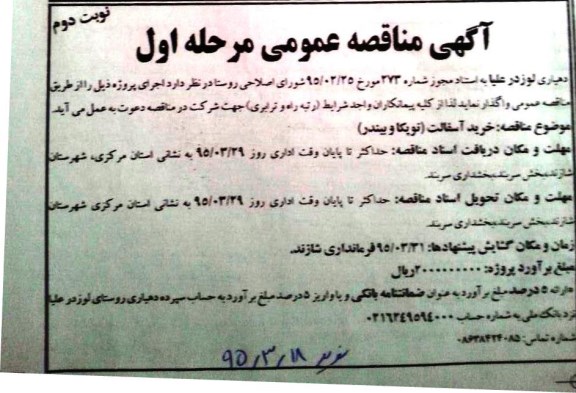 نوبت دوم
آگهی مناقصه عمومی مرحله اول
دهیاری لوزدر علیا به استناد مجوز شماره ۲۷۳ مورخ ۹۵/۰۲/۲۵ شورای اصلاحی روستا در نظر دارد اجرای پروژه ذیل را از طریق
مناقصه عمومی واگذار نماید لذا از کلیه پیمانکاران واجد شرایط (رتبه راه و ترابری) جهت شرکت در مناقصه دعوت به عمل می آید.
موضوع مناقصه: خرید آسفالت (توپکا و بیندر)
مهلت و مکان دریافت اسناد مناقصه: حداکثر تا پایان وقت اداری روز ۹۵/۰۳/۲۹ به نشانی استان مرکزی، شهرستان
شازند، بخش سربند، بخشداری سربند.
مهلت و مکان تحویل اسناد مناقصه: حداکثر تا پایان وقت اداری روز ۹۵/۰۳/۲۹ به نشانی استان مرکزی شهرستان
شازند، بخش سربند، بخشداری سربند.
زمان و مکان گشایش پیشنهادها: ۹۵/۰۳/۳۱ فرمانداری شازند.
مبلغ برآورد پروژه: ۲۰۰۰۰۰۰۰۰۰ ریال
*ارائه ۵ درصد مبلغ برآورد به عنوان ضمانتنامه بانکی و یا واریز ۵ درصد مبلغ برآورد به حساب سپرده دهیاری روستای لوزدر علیا
نزد بانک ملی به شماره حساب ۰۲۱۶۳۴۹۵۹۴۰۰۰
شماره تماس: ۰۸۶۳۸۴۲۴۰۸۵
۹۵/۳/۱۸